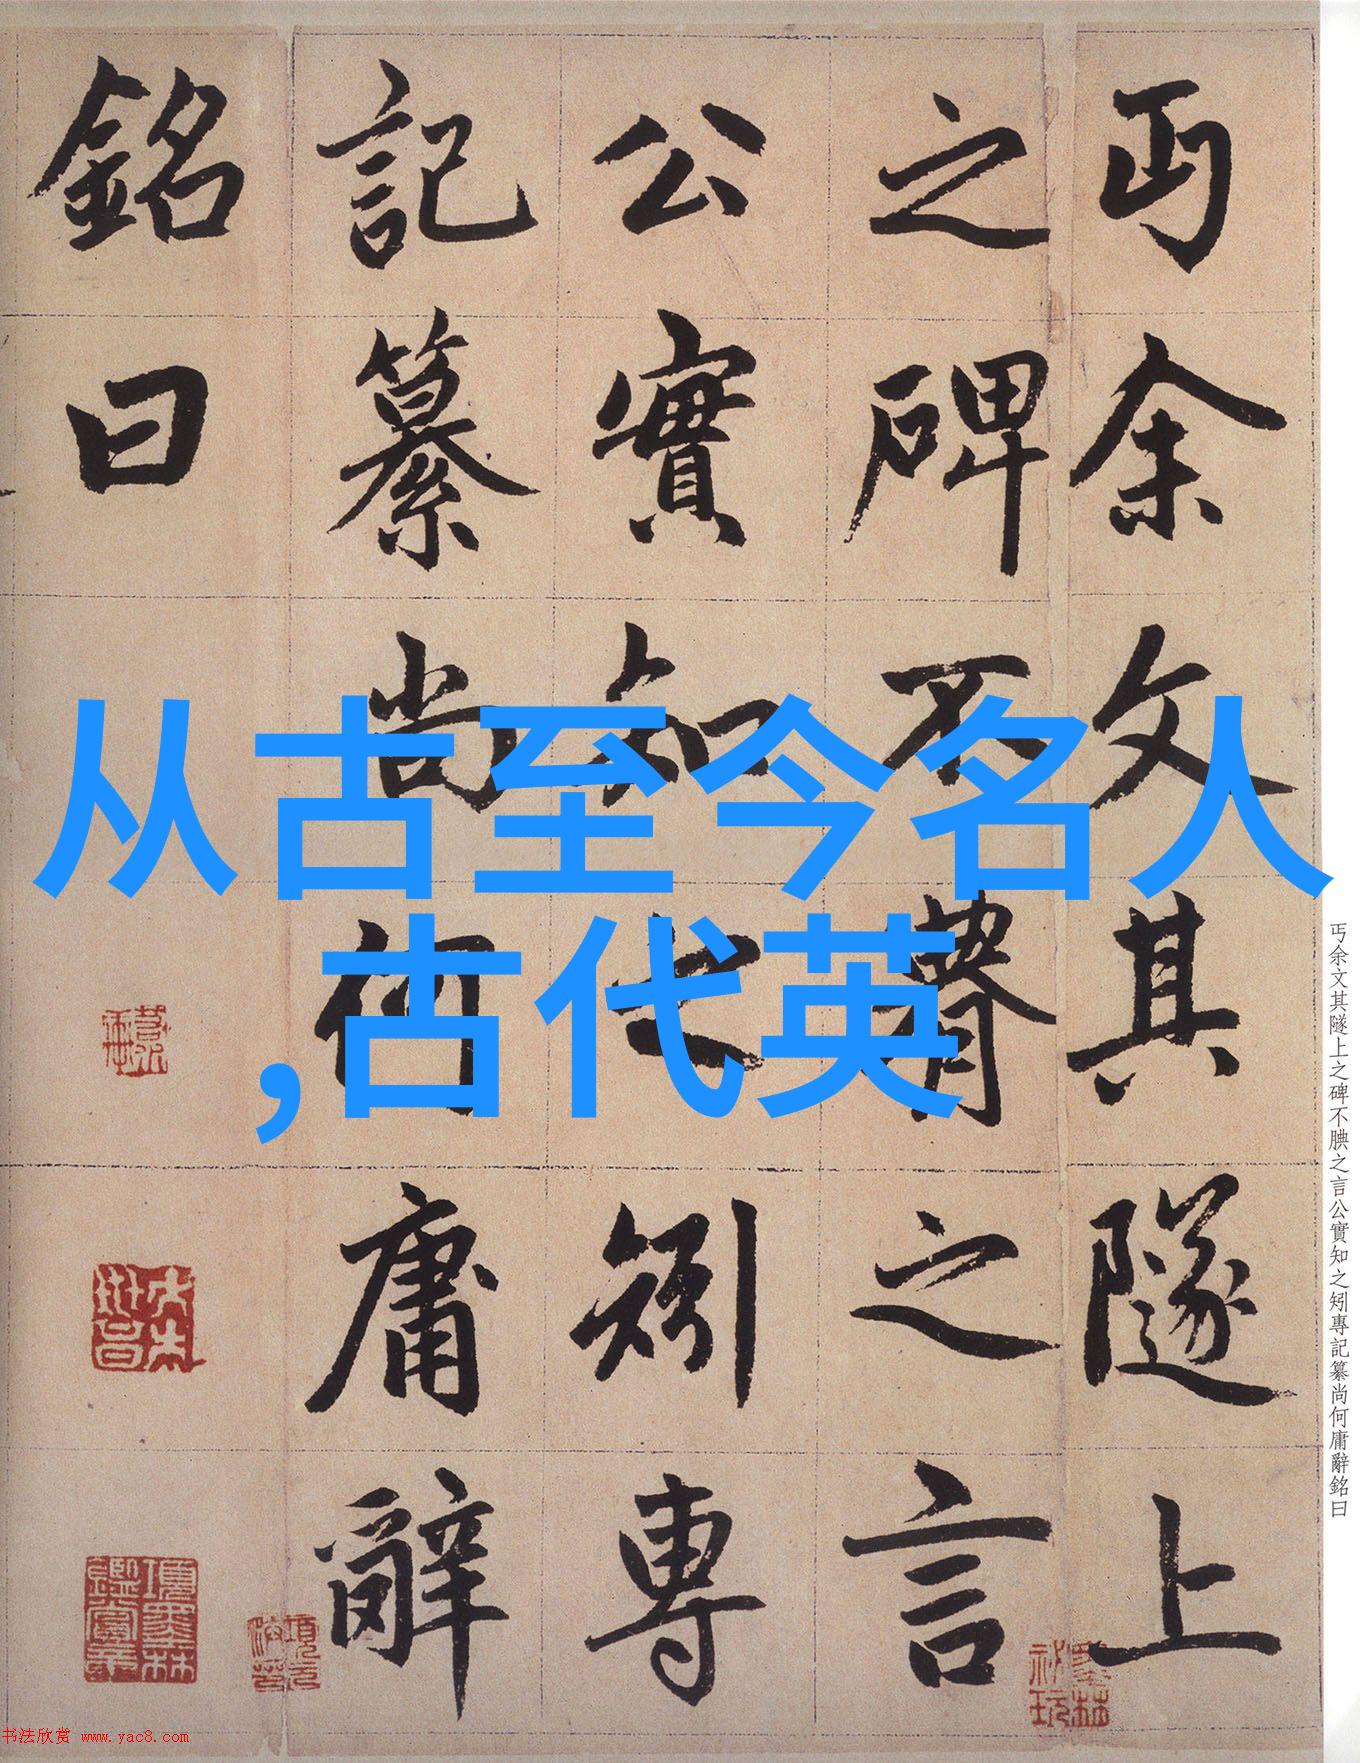 从古至今名人
,古代英
丐余文其隧上
之碑不腆之言
公實知之矧專
記纂尚何庸辭
銘曰
丐余文其隧上之碑不腆之言公實知之矧專記纂尚何庸辭銘曰
項墨林鑑賞章
墨林祕玩
书法欣赏 www.yac8.com